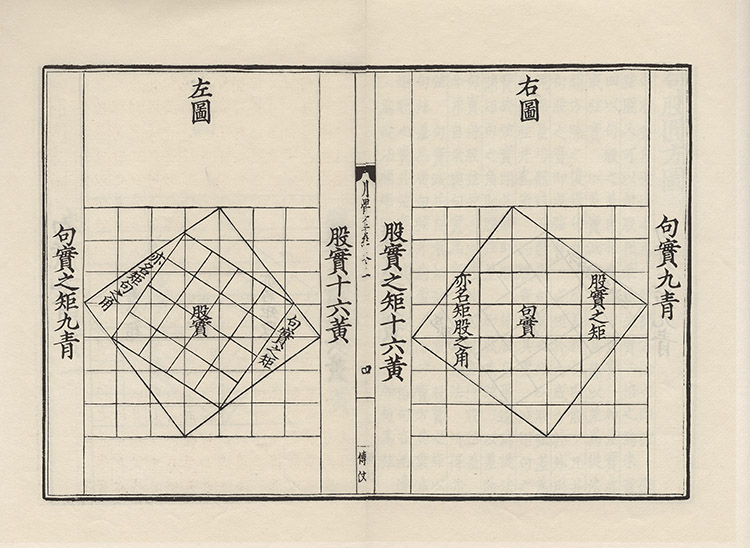 句實九青
右圖
股實之矩
句實
亦名矩股之角
股實之矩十六黃
四
股實十六黃
左圖
句實之矩
股實
亦名矩句之角
句實之矩九青